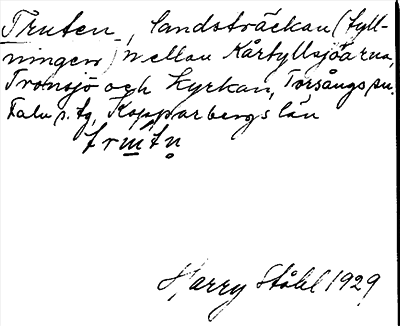 Truten, landsträckan (fyll-
ningen) mellan Kårtyllsjöarna,
Tronsjö och Kyrkan, Torsångs sn.
Falu s. tg, Kopparbergs län
trut n
Harry Ståhl 1929